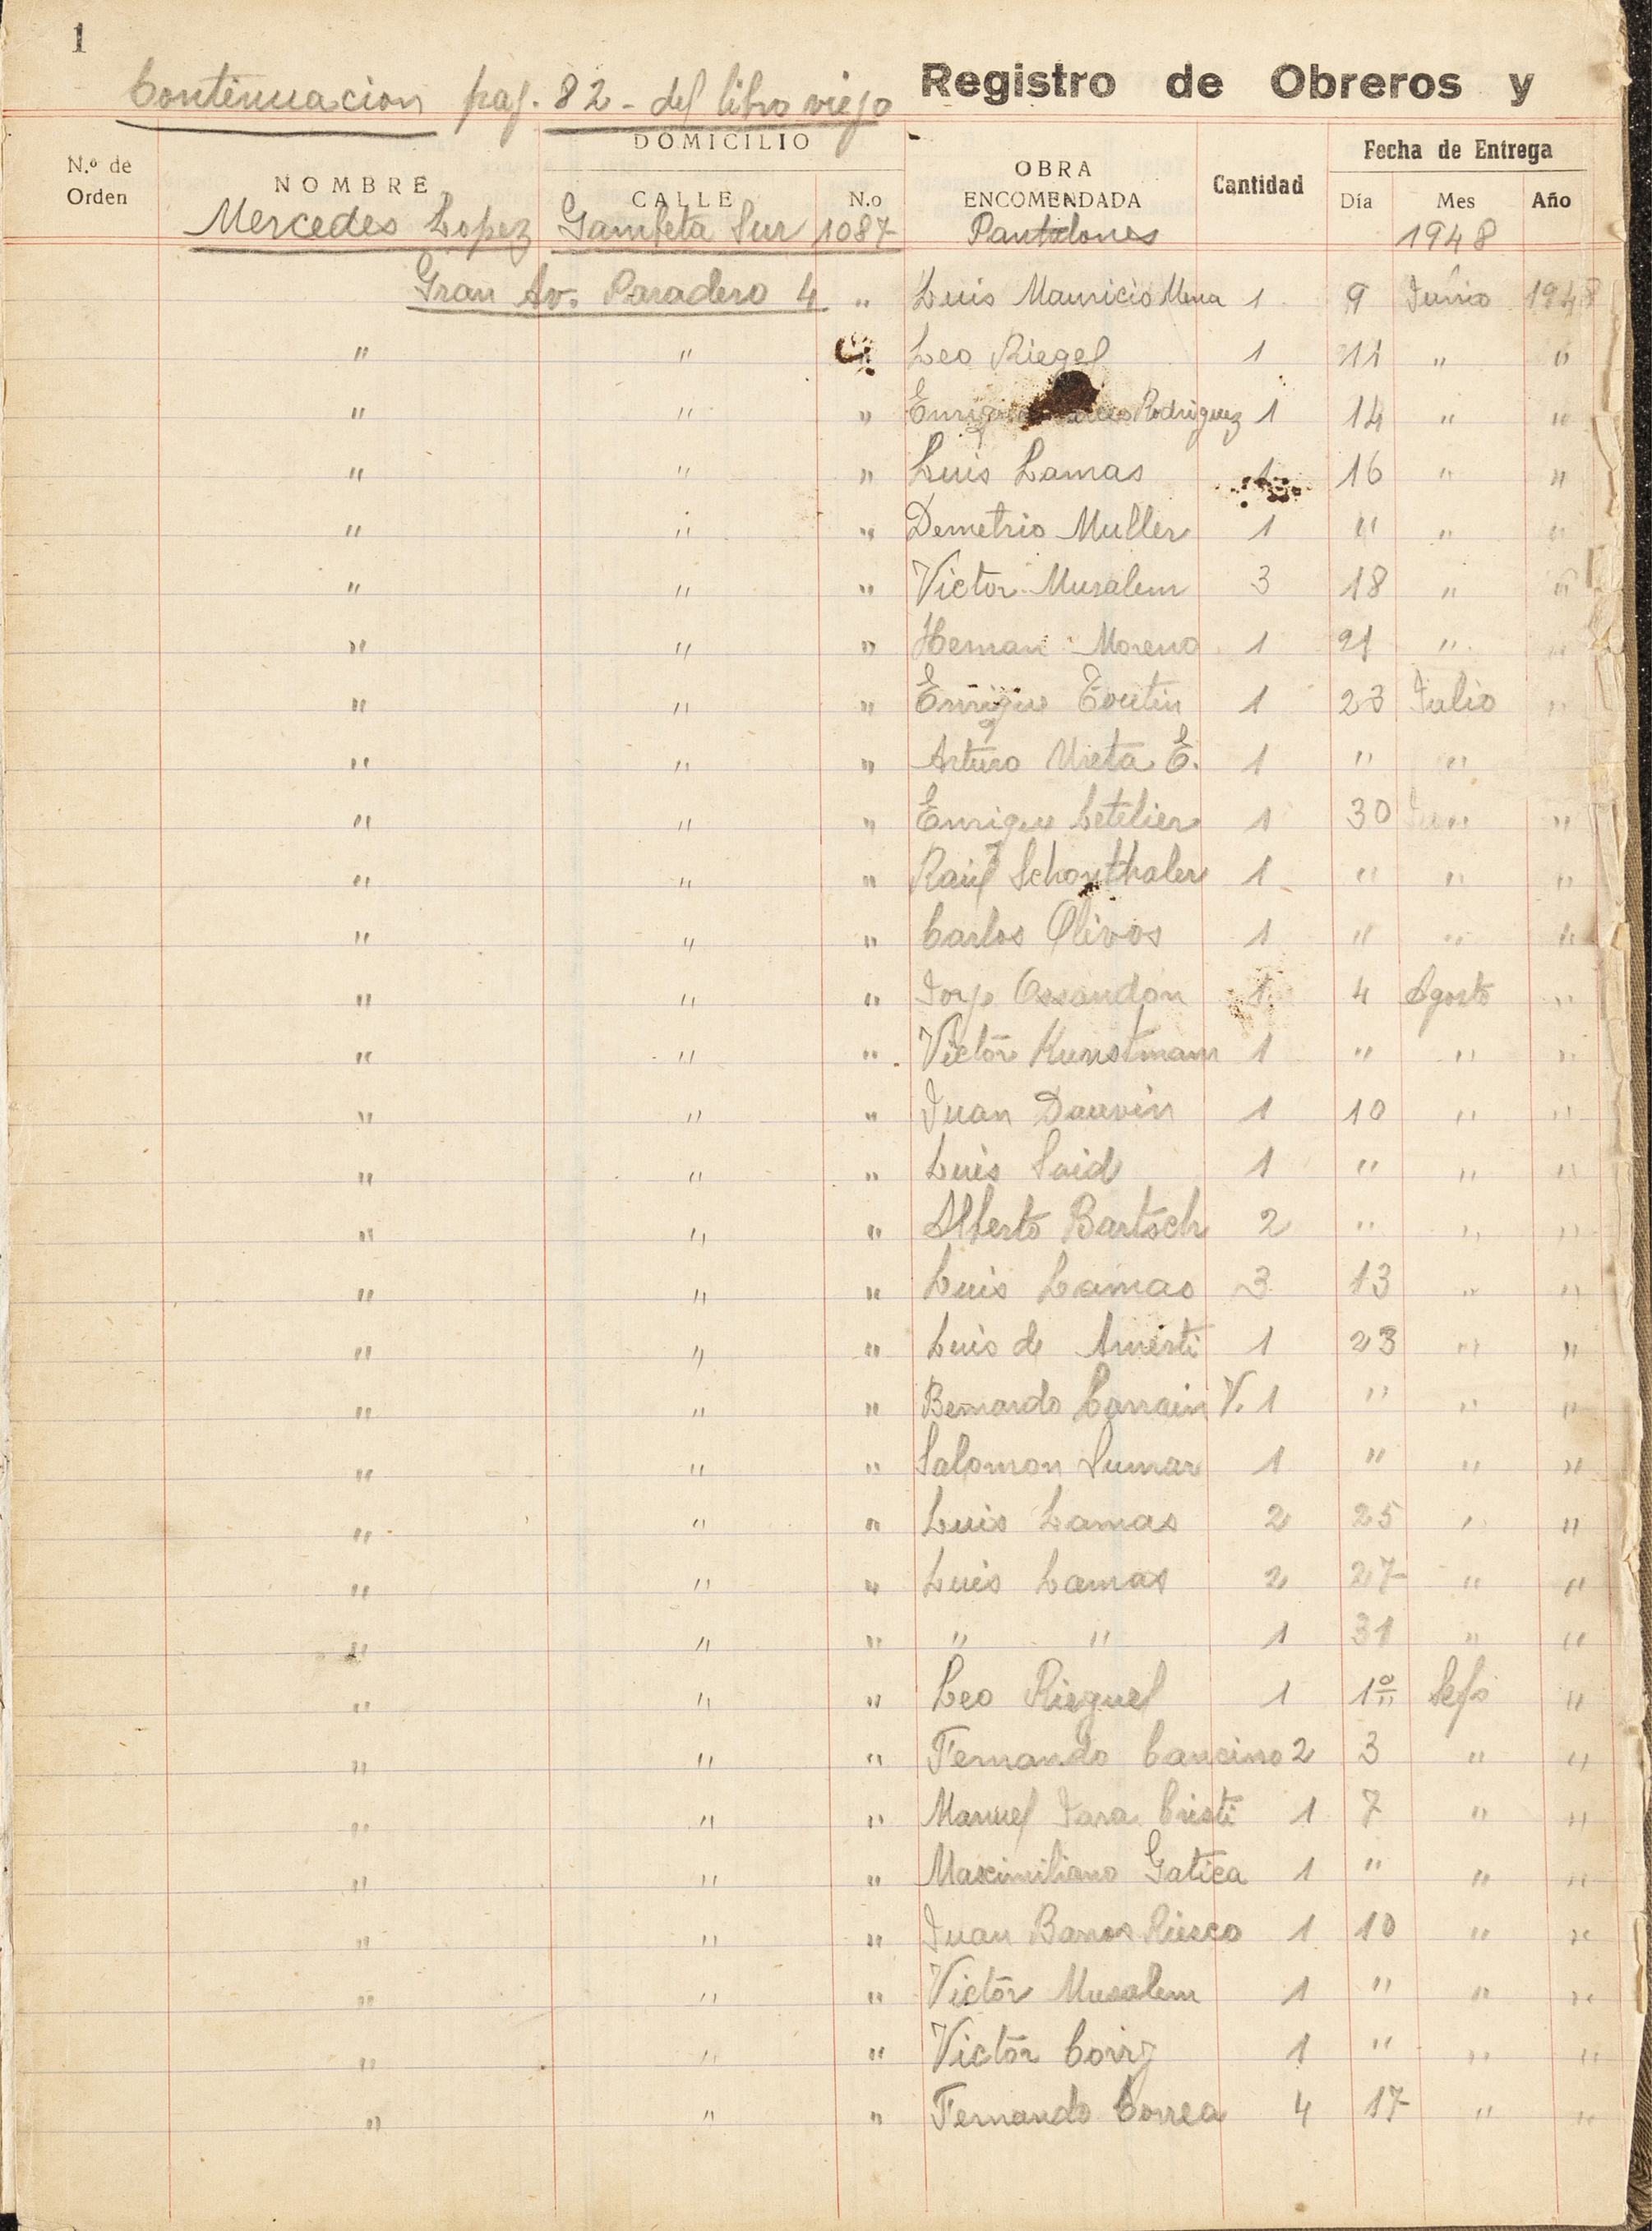 1
Continuacion pag. 82 - del libro viejo Registro de Obreros y
N.º de Orden NOMBRE DOMICILIO CALLE N.o OBRA ENCOMENDADA Cantidad Fecha de Entrega Día Mes Año
Mercedes Lopez Gambeta Sur 1087 Pantalones 1948
Gran Av. Paradero 4 " Luis Mauricio Mena 1 9 Junio 1948
" " " Leo Riegel 1 11 " "
" " " Enrique Rodriguez 1 14 " "
" " " Luis Lamas 1 16 " "
" " " Demetrio Muller 1 " " "
" " " Victor Musalem 3 18 " "
" " " Hernan Moreno 1 21 " "
" " " Enrique Toutin 1 23 Julio "
" " " Arturo Ureta E. 1 " "
" " " Enrique Letelier 1 30 " "
" " " Raúl Schonthaler 1 " " "
" " " Carlos Olivos 1 " " "
" " " Jorje Ossandon 1 4 Agosto "
" " " Victor Kunstmann 1 " " "
" " " Juan Dauvin 1 10 " "
" " " Luis Said 1 " " "
" " " Alberto Bartsch 2 " " "
" " " Luis Lamas 3 13 " "
" " " Luis de Amesti 1 23 " "
" " " Bernardo Larrain V. 1 " " "
" " " Salomon Sumar 1 " " "
" " " Luis Lamas 2 25 " "
" " " Luis Lamas 2 27 " "
" " " " " 1 31 " "
" " " Leo Rieguel 1 1º Sep. "
" " " Fernando Cancino 2 3 " "
" " " Manuel Jara Cristi 1 7 " "
" " " Maximiliano Gatica 1 " " "
" " " Juan Barros Riesco 1 10 " "
" " " Victor Musalem 1 " " "
" " " Victor 1 " " "
" " " Fernando Correa 4 17 " "